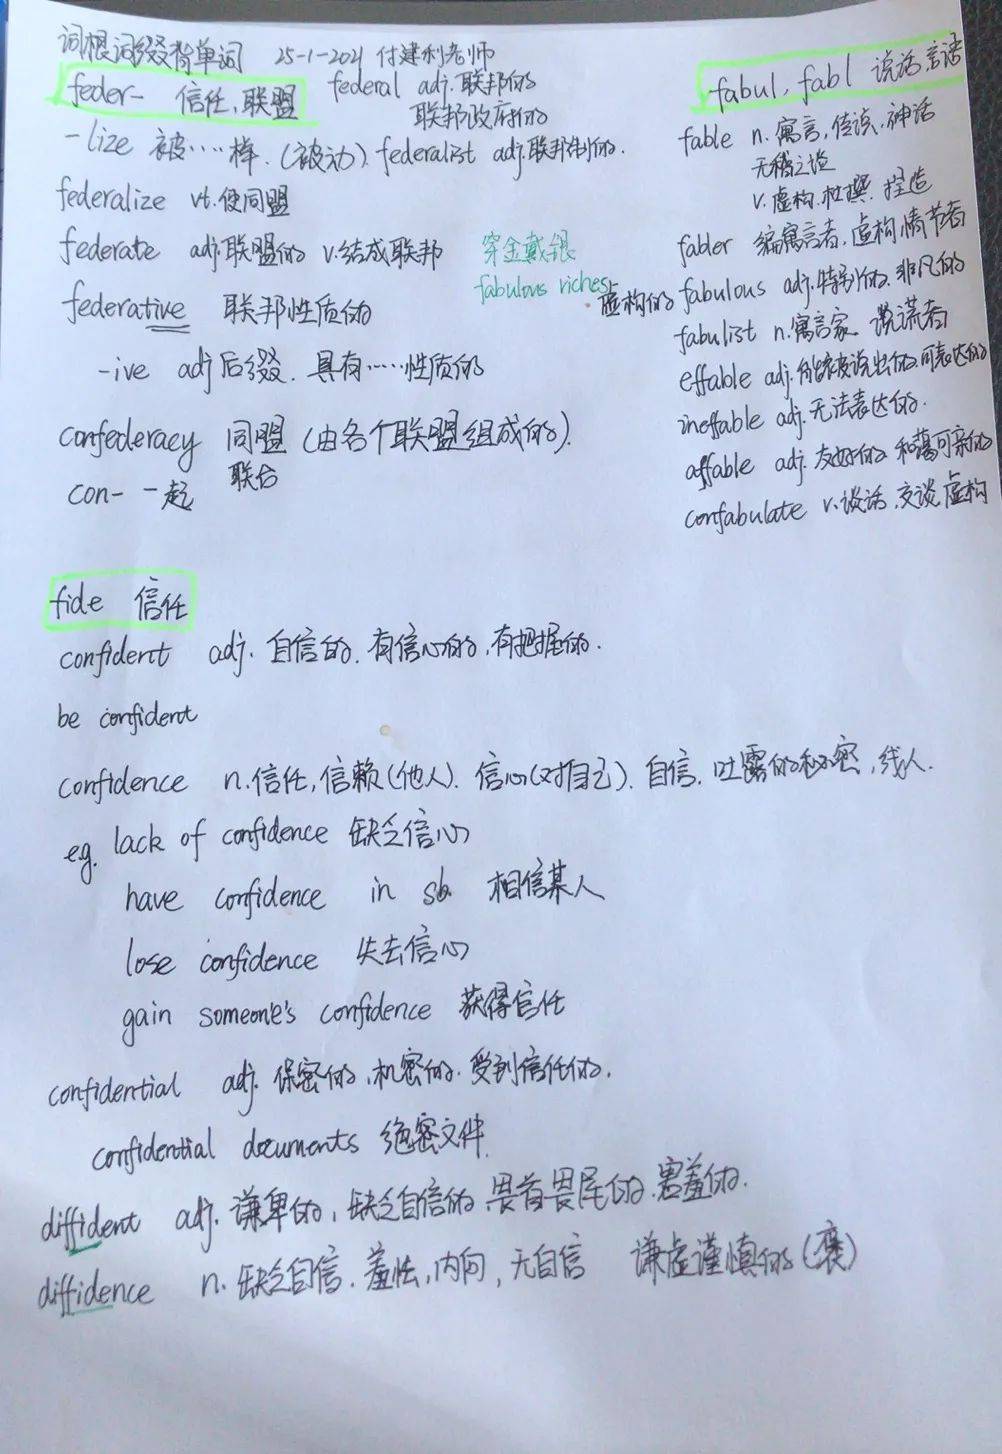 词根词缀背单词 25-1-2021 付建利老师
feder- 信任,联盟 federal adj.联邦的
联邦政府的
-lize 被……样.(被动) federalist adj.联邦制的.
federalize vt.使同盟
federate adj.联盟的 v.结成联邦
federative 联邦性质的
-ive adj后缀.具有……性质的
confederacy 同盟(由各个联盟组成的).
联合
con- 一起
穿金戴银
fabulous riches
fabul, fabl 说话,言语
fable n.寓言,传说.神话
无稽之谈
v.虚构.杜撰.捏造
fabler 编寓言者,虚构情节者
虚构的 fabulous adj.特别的.非凡的
fabulist n.寓言家.说谎者
effable adj.能被说出的.可表达的
ineffable adj.无法表达的.
affable adj.友好的.和蔼可亲的
confabulate v.谈话.交谈.虚构
fide 信任
confident adj.自信的.有信心的,有把握的.
be confident
confidence n.信任,信赖(他人).信心(对自己).自信.吐露的秘密,线人.
eg. lack of confidence 缺乏信心
have confidence in sb. 相信某人
lose confidence 失去信心
gain someone's confidence 获得信任
confidential adj.保密的,机密的.受到信任的.
confidential documents 绝密文件.
diffident adj.谦卑的,缺乏自信的.畏首畏尾的.害羞的.
diffidence n.缺乏自信.羞怯,内向,无自信 谦虚谨慎的(褒)